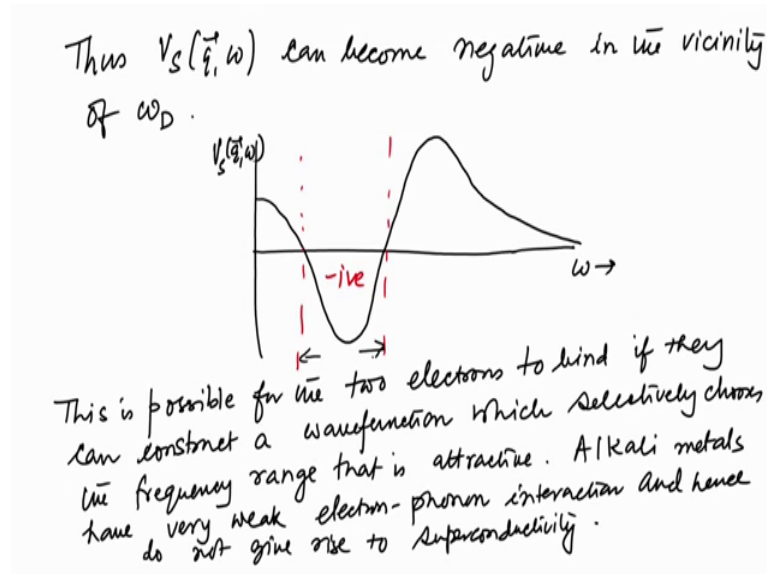 Thus V_S(q⃗, ω) can become negative in the vicinity
of ω_D.
V_S(q⃗, ω)
-ive
ω →
This is possible for the two electrons to bind if they
can construct a wavefunction which selectively chooses
the frequency range that is attractive. Alkali metals
have very weak electron-phonon interaction and hence
do not give rise to superconductivity.